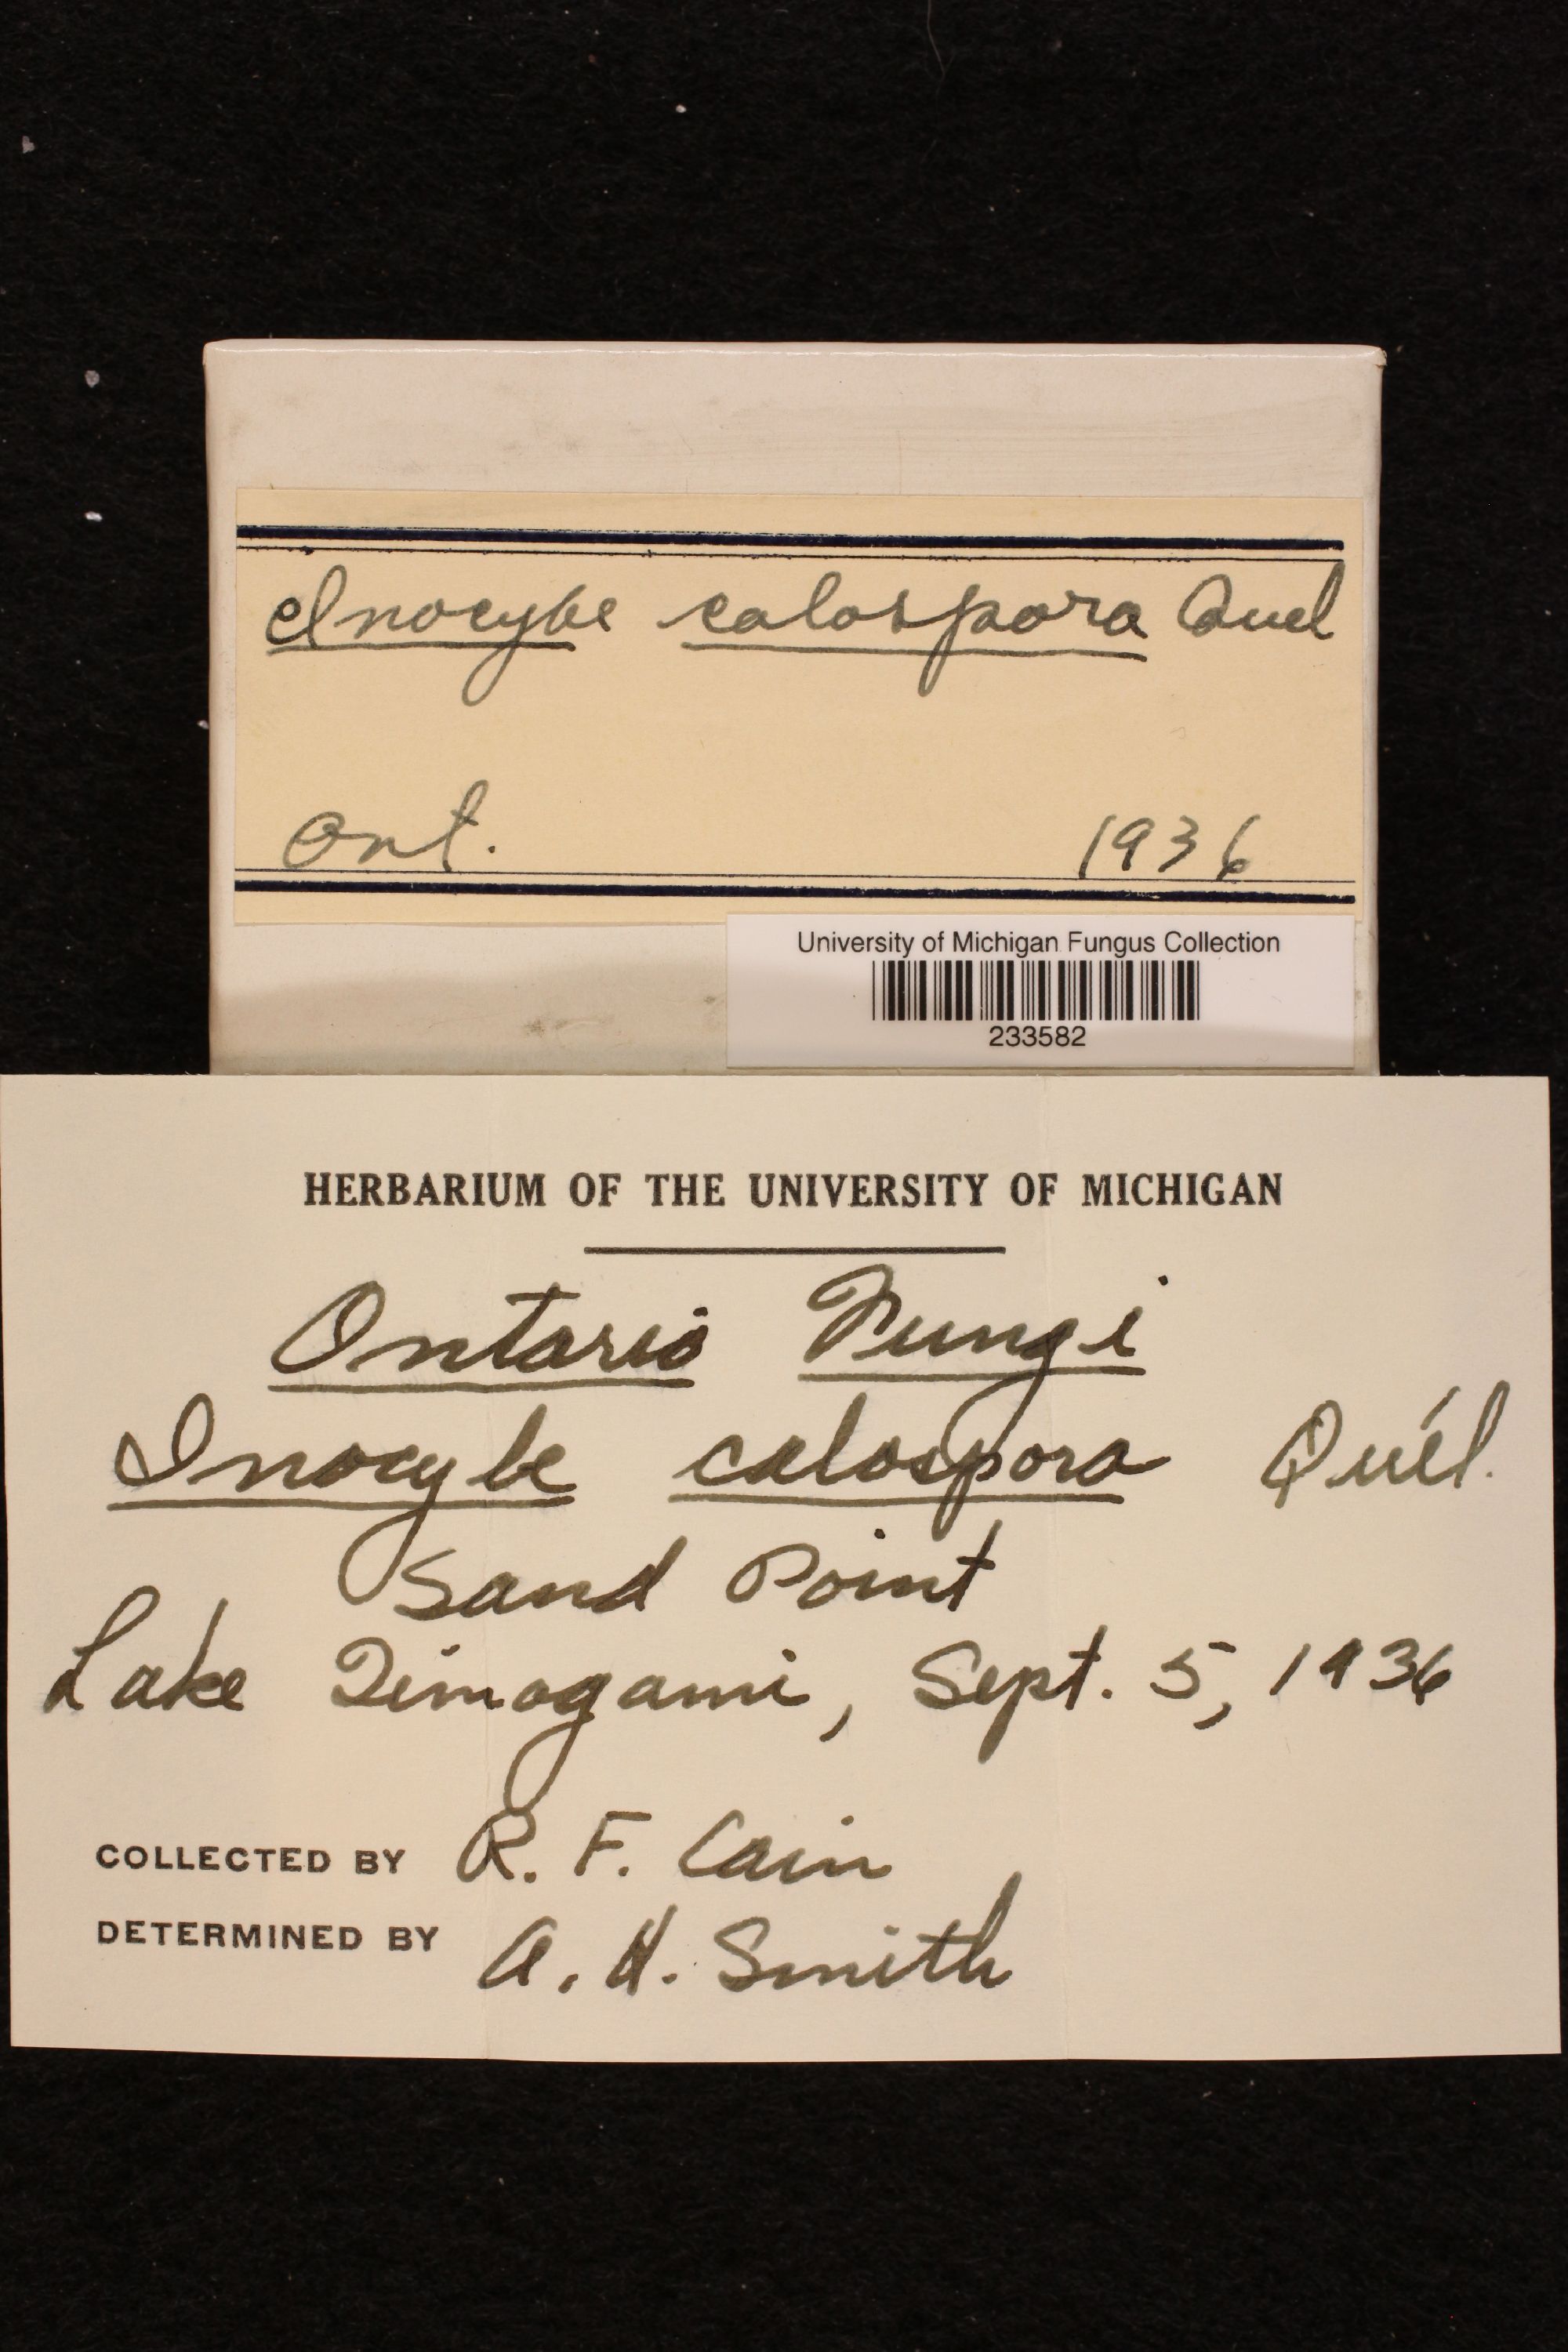 Inocybe calospora Quel
Ont. 1936
University of Michigan Fungus Collection
233582
HERBARIUM OF THE UNIVERSITY OF MICHIGAN
Ontario Fungi
Inocybe calospora Quél.
Sand Point
Lake Timagami, Sept. 5, 1936
COLLECTED BY R. F. Cain
DETERMINED BY A. H. Smith